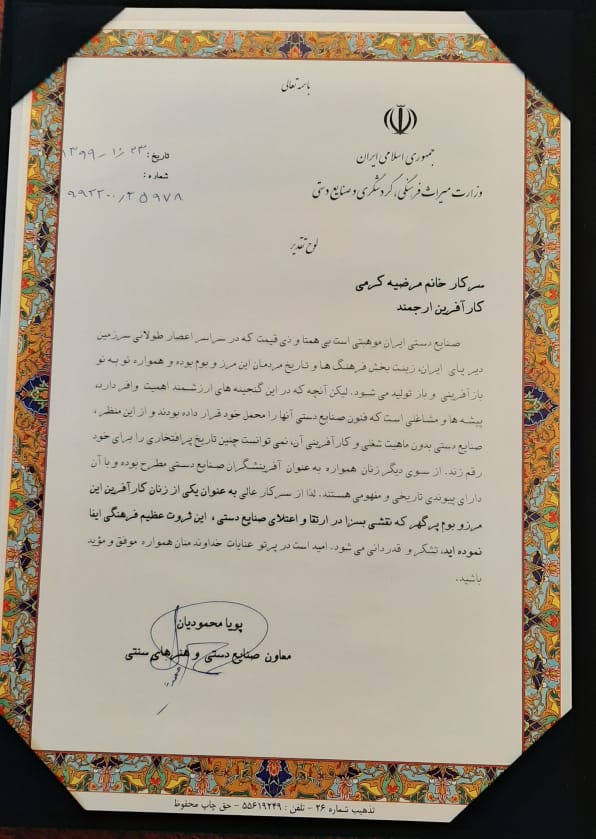 باسمه تعالی
جمهوری اسلامی ایران
وزارت میراث فرهنگی، گردشگری و صنایع دستی
تاریخ: ۱۳۹۹/۱۰/۲۳
شماره:
۹۹۲۲۰۰/۲۵۹۷۸
لوح تقدیر
سرکار خانم مرضیه کرمی
کارآفرین ارجمند
صنایع دستی ایران موهبتی است بی همتا و ذی قیمت که در سراسر اعصار طولانی سرزمین
دیر پای ایران، زینت بخش فرهنگ ها و تاریخ مردمان این مرز و بوم بوده و همواره نو به نو
بازآفرینی و باز تولید می شود. لیکن آنچه که در این گنجینه های ارزشمند اهمیت وافر دارد،
پیشه ها و مشاغلی است که فنون صنایع دستی آنها را محمل خود قرار داده بودند و از این منظر،
صنایع دستی بدون ماهیت شغلی و کارآفرینی آن، نمی توانست چنین تاریخ پرافتخاری را برای خود
رقم زند. از سوی دیگر زنان همواره به عنوان آفرینشگران صنایع دستی مطرح بوده و با آن
دارای پیوندی تاریخی و مفهومی هستند. لذا از سرکار عالی به عنوان یکی از زنان کارآفرین این
مرز و بوم پرگهر که نقشی بسزا در ارتقا و اعتلای صنایع دستی، این ثروت عظیم فرهنگی ایفا
نموده اید، تشکر و قدردانی می شود. امید است در پرتو عنایات خداوند منان همواره موفق و مؤید
باشید.
پویا محمودیان
معاون صنایع دستی و هنرهای سنتی
تذهیب شماره ۲۶ - تلفن : ۵۵۶۱۹۲۴۹ - حق چاپ محفوظ